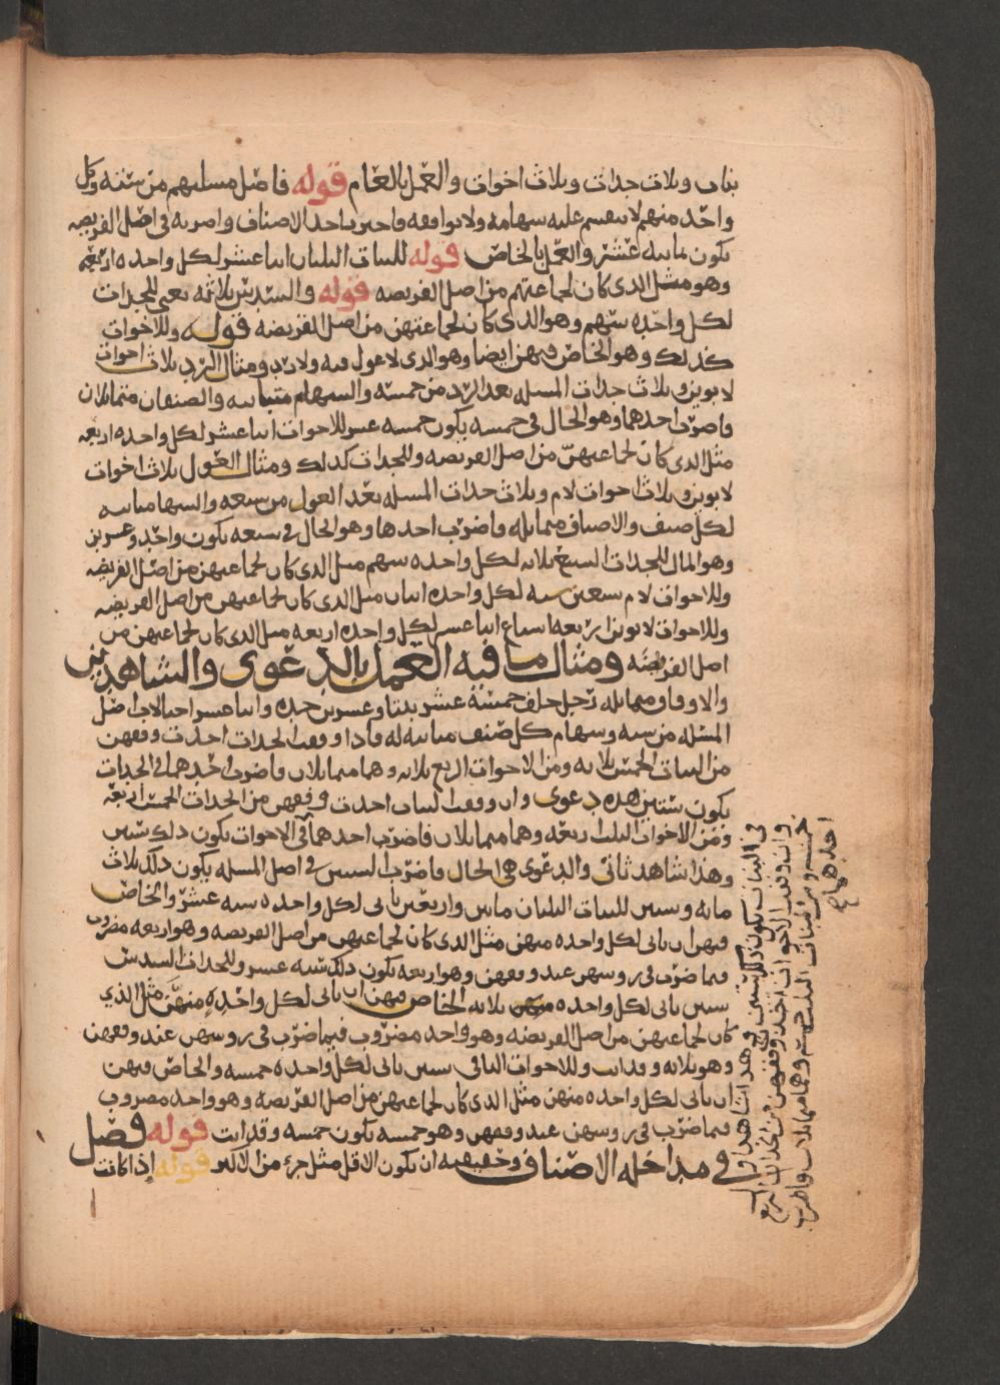 بنات وثلاث جدات وثلاث اخوات والعمل بالعام قوله فاصل مسلتهم من ستة وكل
واحد منهم لا تنقسم عليه سهامه ولا توافقه فاجتز باحد الاصناف واضربه في اصل الفريضه
تكون ثمانيه عشر والعمل بالخاص قوله للبنات الثلثان اثنا عشر لكل واحده اربعه
وهو مثل الذي كان لجماعتهم من اصل الفريضه قوله والسدس ثلاثه يعني للجدات
لكل واحده سهم وهو الذي كان لجماعتهن من اصل الفريضه قوله وللاخوات
كذلك وهو الخاص فيهن ايضا وهو الذي لا عول فيه ولا رد ومثال الرد ثلاث اخوات
لابوين وثلاث جدات المسله بعد الرد من خمسه والسهام متباينه والصنفان متماثلان
فاضرب احدهما وهو الحال في خمسه يكون خمسه عشر للاخوات اثنا عشر لكل واحده اربعه
مثل الذي كان لجماعتهن من اصل الفريضه وللجدات كذلك ومثال العول ثلاث اخوات
لابوين وثلاث اخوات لام وثلاث جدات المسله بعد العول من سبعه والسهام مباينه
لكل صنف والاصناف متماثله فاضرب احدها وهو الحال في سبعه يكون واحد وعشرين
وهو المال للجدات السبع ثلاثه لكل واحده سهم مثل الذي كان لجماعتهن من اصل الفريضه
وللاخوات لام سبعين سته لكل واحده اثنان مثل الذي كان لجماعتهن من اصل الفريضه
وللاخوات لابوين اربعه اسباع اثنا عشر لكل واحده اربعه مثل الذي كان لجماعتهن من
اصل الفريضه ومثال ما فيه العمل بالدعوى والشاهدين
والاوفاق متماثله رجل خلف خمسة عشر بنتا وعشرين جده واثنا عشر اختا لاب اصل
المسله من سته وسهام كل صنف مباينه له فاذا وقفت الجدات اخذت وفقهن
من البنات الخمس ثلاثه ومن الاخوات الربع ثلاثه وهما متماثلان فاضرب احدهما في الجدات
يكون ستين هذه دعوى وان وقفت البنات اخذت وفقهن من الجدات الخمس اربعه
ومن الاخوات الثلث اربعه وهما متماثلان فاضرب احدهما في الاخوات يكون ذلك ستين
وهذا شاهد ثاني والدعوى هي الحال فاضرب الستين في اصل المسله يكون ذلك ثلاث
مايه وستين للبنات الثلثان مايتين واربعين ياتي لكل واحده سته عشر والخاص
فيهن ان ياتي لكل واحده منهن مثل الذي كان لجماعتهن من اصل الفريضه وهو اربعه مضروب
فيما ضرب في روسهن عند وفقهن وهو اربعه يكون ذلك سته عشر وللجدات السدس
ستين ياتي لكل واحده ثلاثه الخاص فيهن ان ياتي لكل واحده منهن مثل الذي
كان لجماعتهن من اصل الفريضه وهو واحد مضروب فيما ضرب في روسهن عند وفقهن
وهو ثلاثه وقد اتت وللاخوات الباقي ستين ياتي لكل واحده خمسه والخاص فيهن
ان ياتي لكل واحده منهن مثل الذي كان لجماعتهن من اصل الفريضه وهو واحد مضروب
فيما ضرب في روسهن عند وفقهن وهو خمسه يكون خمسه وقد اتت قوله فصل
في مداخله الاصناف وحقيقته ان يكون الاقل مثل جزء من الاكثر قوله اذا كانت
في البنات يكون ذلك ستين وهذا شاهد اول
وان وقفت الاخوات اخذت وفقهن من الجدات الربع
خمسه ومن البنات الثلث خمسه وهما متماثلان فاضرب
احدهما في